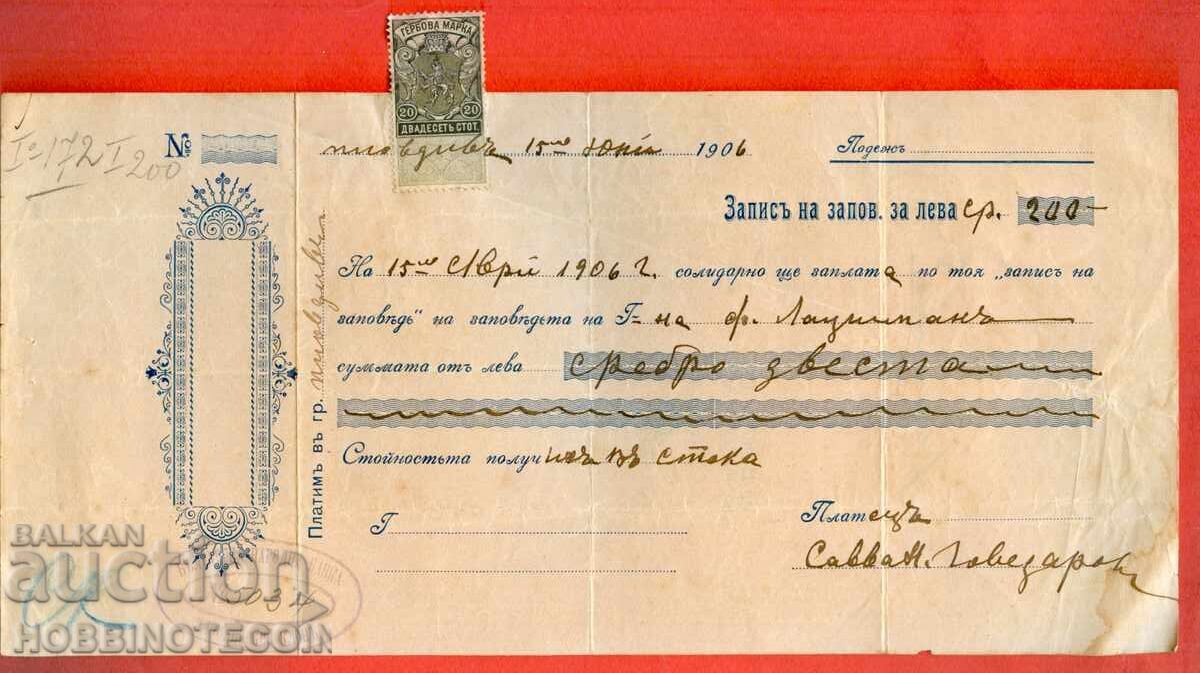 ГЕРБОВА МАРКА
20 20
ДВАДЕСЕТЬ СТОТ.
I=172 I 200
№
Пловдивъ 15ий Юний 1906
Падежъ
Записъ на запов. за лева ср. 200-
На 15ий 1906 г. солидарно ще заплата по тоя „записъ на
заповѣдь" на заповѣдьта на Г-на Ф.
суммата отъ лева сребро двеста
Стойностьта получихъ въ стока
Платимъ въ гр. Пловдивъ
Г
Платецъ
Савва Н. Говедаровъ
BALKAN
auction
HOBBINOTECOIN